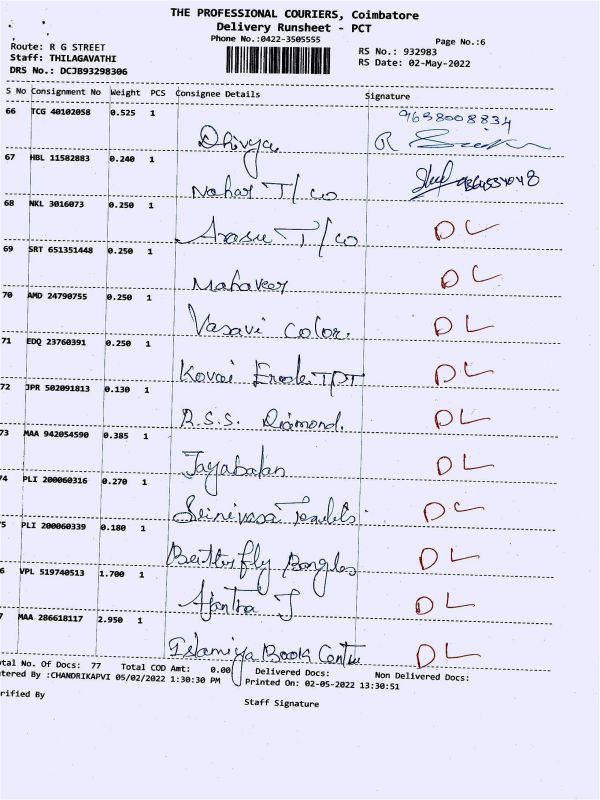 THE PROFESSIONAL COURIERS, Coimbatore
Delivery Runsheet - PCT
Phone No.:0422-3505555
Page No.:6
Route: R G STREET
RS No.: 932983
Staff: THILAGAVATHI
RS Date: 02-May-2022
DRS No.: DCJB93298306
S No Consignment No Weight PCS Consignee Details Signature
66 TCG 40102058 0.525 1 Dhivya 9658008834
R
67 HBL 11582883 0.240 1 Nahar T/co
68 NKL 3016073 0.250 1 Arasu T/co DL
69 SRT 651351448 0.250 1 Mahaveer DL
70 AMD 24790755 0.250 1 Vasavi Color. DL
71 EDQ 23760391 0.250 1 Kovai Erode TPT DL
72 JPR 502091813 0.130 1 R.S.S. Diamond. DL
73 MAA 942054590 0.385 1 Jayabalan DL
74 PLI 200060316 0.270 1 Srinivasa DL
5 PLI 200060339 0.180 1 Butterfly Bangles DL
6 VPL 519740513 1.700 1 Ajantha J DL
7 MAA 286618117 2.950 1 Islamiya Book Centre DL
otal No. Of Docs: 77 Total COD Amt: 0.00 Delivered Docs: Non Delivered Docs:
tered By :CHANDRIKAPVI 05/02/2022 1:30:30 PM Printed On: 02-05-2022 13:30:51
rified By
Staff Signature